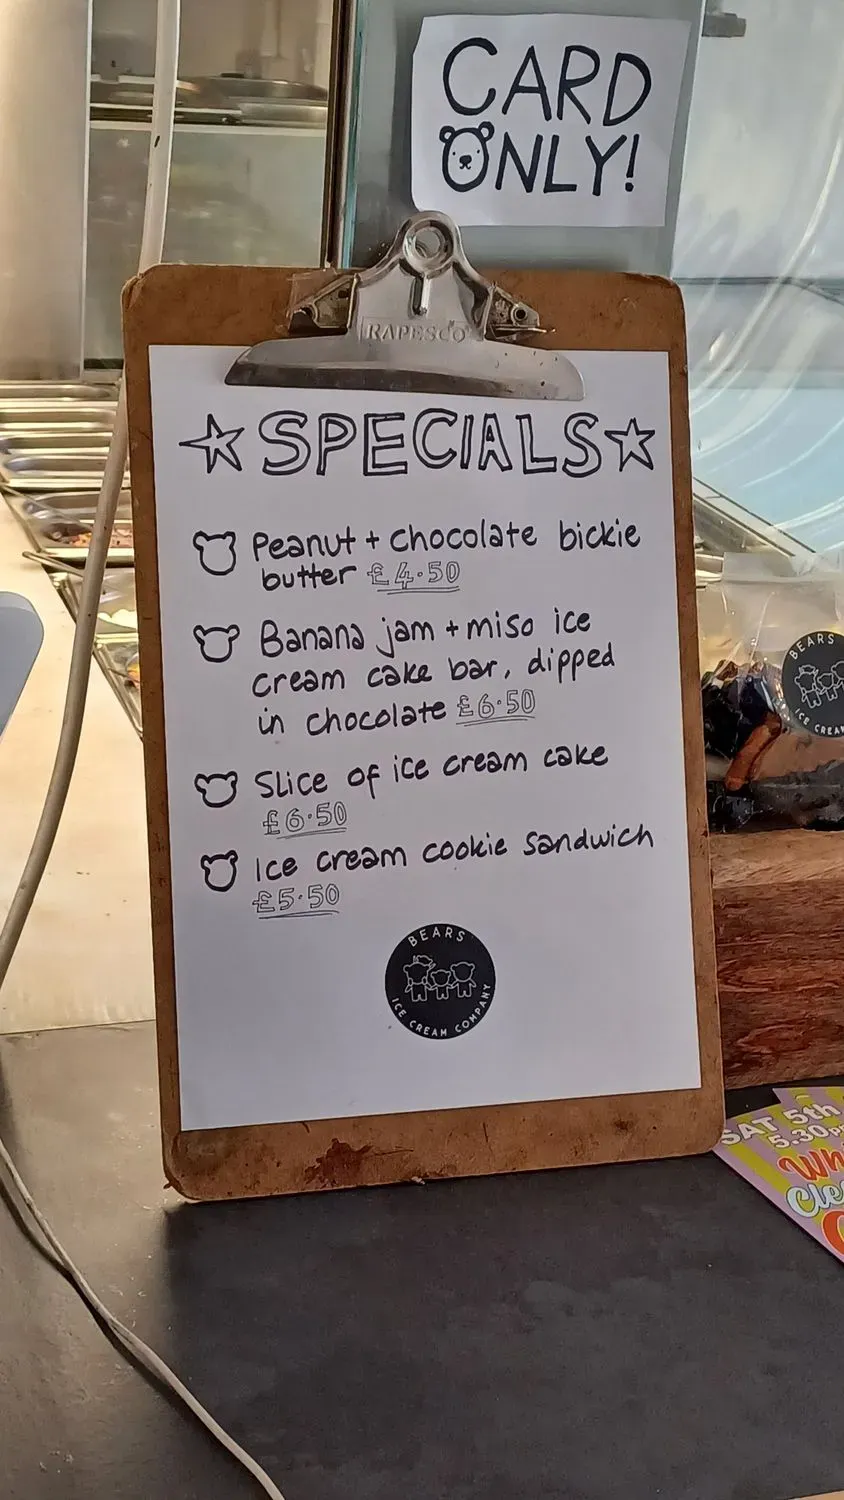 CARD
ONLY!
RAPESCO
SPECIALS
Peanut + chocolate bickie
butter £4.50
Banana jam + miso ice
cream cake bar, dipped
in chocolate £6.50
Slice of ice cream cake
£6.50
Ice cream cookie sandwich
£5.50
BEARS
ICE CREAM COMPANY
BEARS
ICE CREAM
SAT 5th
5.30